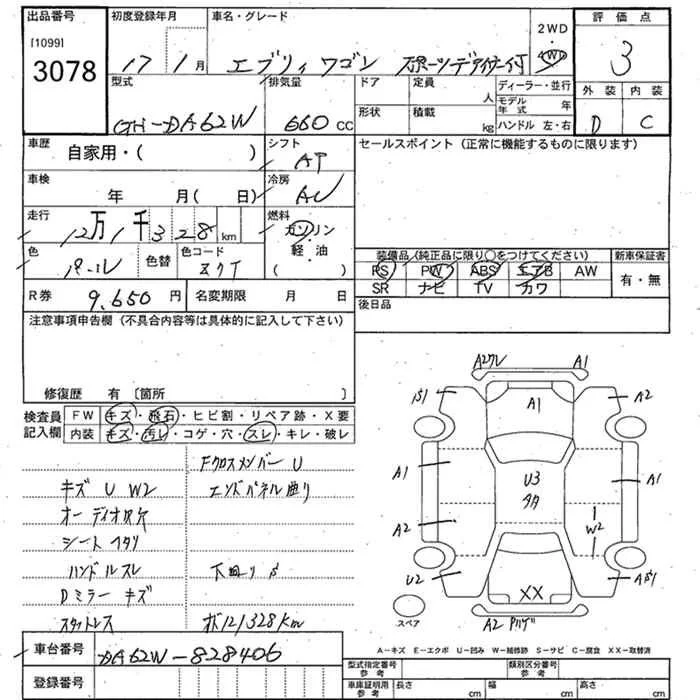 出品番号 初度登録年月 車名・グレード 2WD・4WD 評価点
[1099]
3078 17 1月 エブリィワゴン 3
型式 排気量 ドア 定員 人 ディーラー・並行 外装 内装
モデル年式 年
GH-DA62W 660 CC 形状 積載 kg ハンドル 左・右 D C
車歴 自家用・( ) シフト AT セールスポイント (正常に機能するものに限ります)
車検 年 月( 日) 冷房 AC
走行 12万1千328 km 燃料 ガソリン・軽油 ( )
色 パール 色替 色コード
装備品(純正品に限り○をつけてください) 新車保証書
PS PW ABS エアB AW 有・無
SR ナビ TV カワ
R券 9,650円 名変期限 月 日 後日品
注意事項申告欄 (不具合内容等は具体的に記入して下さい)
修復歴 有 [箇所 ]
検査員記入欄 FW キズ・飛石・ヒビ割・リペア跡・X要
内装 キズ・汚レ・コゲ・穴・スレ・キレ・破レ
FクロスメンバーU
キズ U W2 エンドパネル曲り
オーディオ欠穴
シートヘタリ
ハンドルスレ 下回りS
Dミラーキズ
スタットレス ボ121328km
車台番号 DA62W-828406
登録番号
A1
S1 A1 A2
A1 U3 A1
A2 W2
U2 XX
スペア A2
A-キズ E-エクボ U-凹み W-補修跡 S-サビ C-腐食 XX-取替済
型式指定番号 参考 類別区分番号 参考
車庫証明用 参考 長さ cm 幅 cm 高さ cm